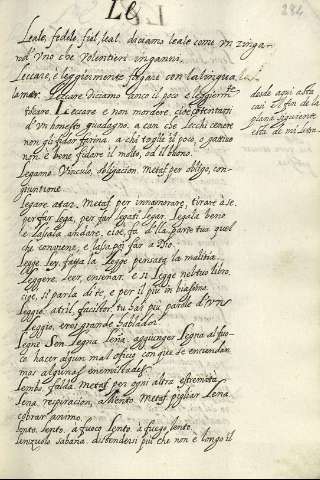 Le
234
Leale, fedele, fiel, leal. diciamo leale come un zinga-
no d'uno che volentieri inganni.
Leccare, e leggiermente fregare con la lingua,
lamer. Leccare diciamo anco il poco e leggier-te
toccare. Leccare e non mordere, cioè contentarsi
d'un honesto guadagno. a can che lecchi cenere
non gli fidar farina. a chi toglie il poco, o cattivo
non è bene fidare il molto, od il buono.
desde aqui asta
casi el fin de la
plana siguiente
esta de mi letra.
Legame. Vinculo, obligacion. Metaf. per obligo, con-
giuntione.
Legare. atar. Metaf. per innamorare, tirare à se.
per far lega, per far legati. legar. Legala bene
e lasciala andare, cioè, fa dalla parte tua quel
che conviene, e lascia poi far a Dio.
Legge. ley. fatta la legge pensata la malitia.
Leggere. leer, ensenar. e si legge nel tuo libro.
cioè, si parla di te, e per il più in biasimo.
leggio. atril, facistor. tu hai più parole d'un
leggio. eres grande hablador.
Legne. Son. Legna. leña. aggiunger legna al fuo-
co. hacer algun mal oficio con que se enciendan
mas algunas enemistades.
Lembo. falda. Metaf. per ogni altra estremità.
Lena. respiracion, aliento. Metaf. pigliar lena.
cobrar animo.
Lento. lento. a fuoco lento. a fuego lento.
Lenzuolo. sabana. distendersi più che non è longo il